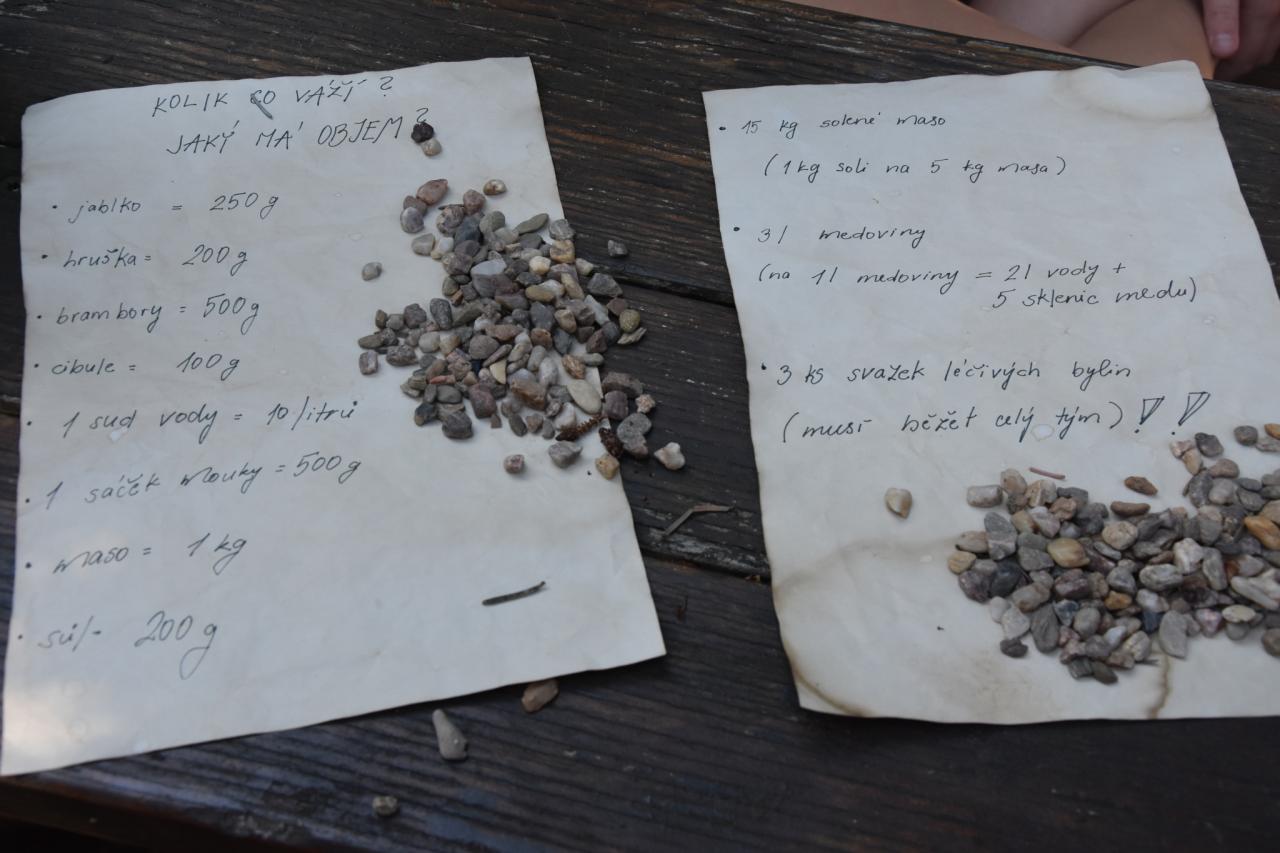 KOLIK CO VÁŽÍ ?
JAKÝ MÁ OBJEM ?
• jablko = 250 g
• hruška = 200 g
• brambory = 500 g
• cibule = 100 g
• 1 sud vody = 10 litrů
• 1 sáček mouky = 500 g
• maso = 1 kg
• sůl - 200 g
• 15 kg solené maso
(1 kg soli na 5 kg masa)
• 3 l medoviny
(na 1 l medoviny = 2 l vody +
5 sklenic medu)
• 3 ks svazek léčivých bylin
(musí běžet celý tým) ! !